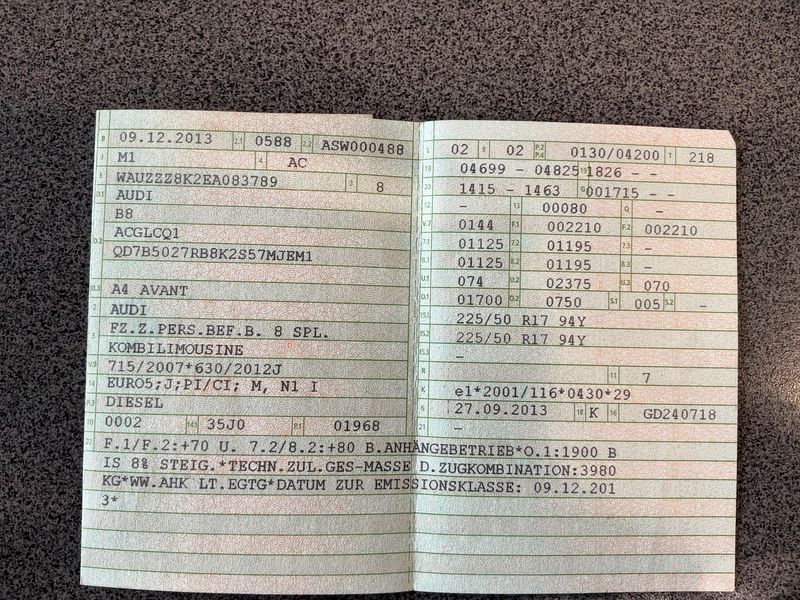 B 09.12.2013 2.1 0588 2.2 ASW000488
J M1 4 AC
E WAUZZZ8K2EA083789 3 8
D.1 AUDI
B8
D.2 ACGLCQ1
QD7B5027RB8K2S57MJEM1
D.3 A4 AVANT
2 AUDI
5 FZ.Z.PERS.BEF.B. 8 SPL.
KOMBILIMOUSINE
V.9 715/2007*630/2012J
14 EURO5;J;PI/CI; M, N1 I
P.3 DIESEL
10 0002 14.1 35J0 P.1 01968
L 02 9 02 P.2 P.4 0130/04200 T 218
18 04699 - 04825 19 1826 - -
20 1415 - 1463 G 001715 - -
12 - 13 00080 Q -
V.7 0144 F.1 002210 F.2 002210
7.1 01125 7.2 01195 7.3 -
8.1 01125 8.2 01195 8.3 -
U.1 074 U.2 02375 U.3 070
O.1 01700 O.2 0750 S.1 005 S.2 -
15.1 225/50 R17 94Y
15.2 225/50 R17 94Y
15.3 -
R 11 7
K e1*2001/116*0430*29
6 27.09.2013 17 K 16 GD240718
21 -
22 F.1/F.2:+70 U. 7.2/8.2:+80 B.ANHÄNGEBETRIEB*O.1:1900 B
IS 8% STEIG.*TECHN.ZUL.GES-MASSE D.ZUGKOMBINATION:3980
KG*WW.AHK LT.EGTG*DATUM ZUR EMISSIONSKLASSE: 09.12.201
3*